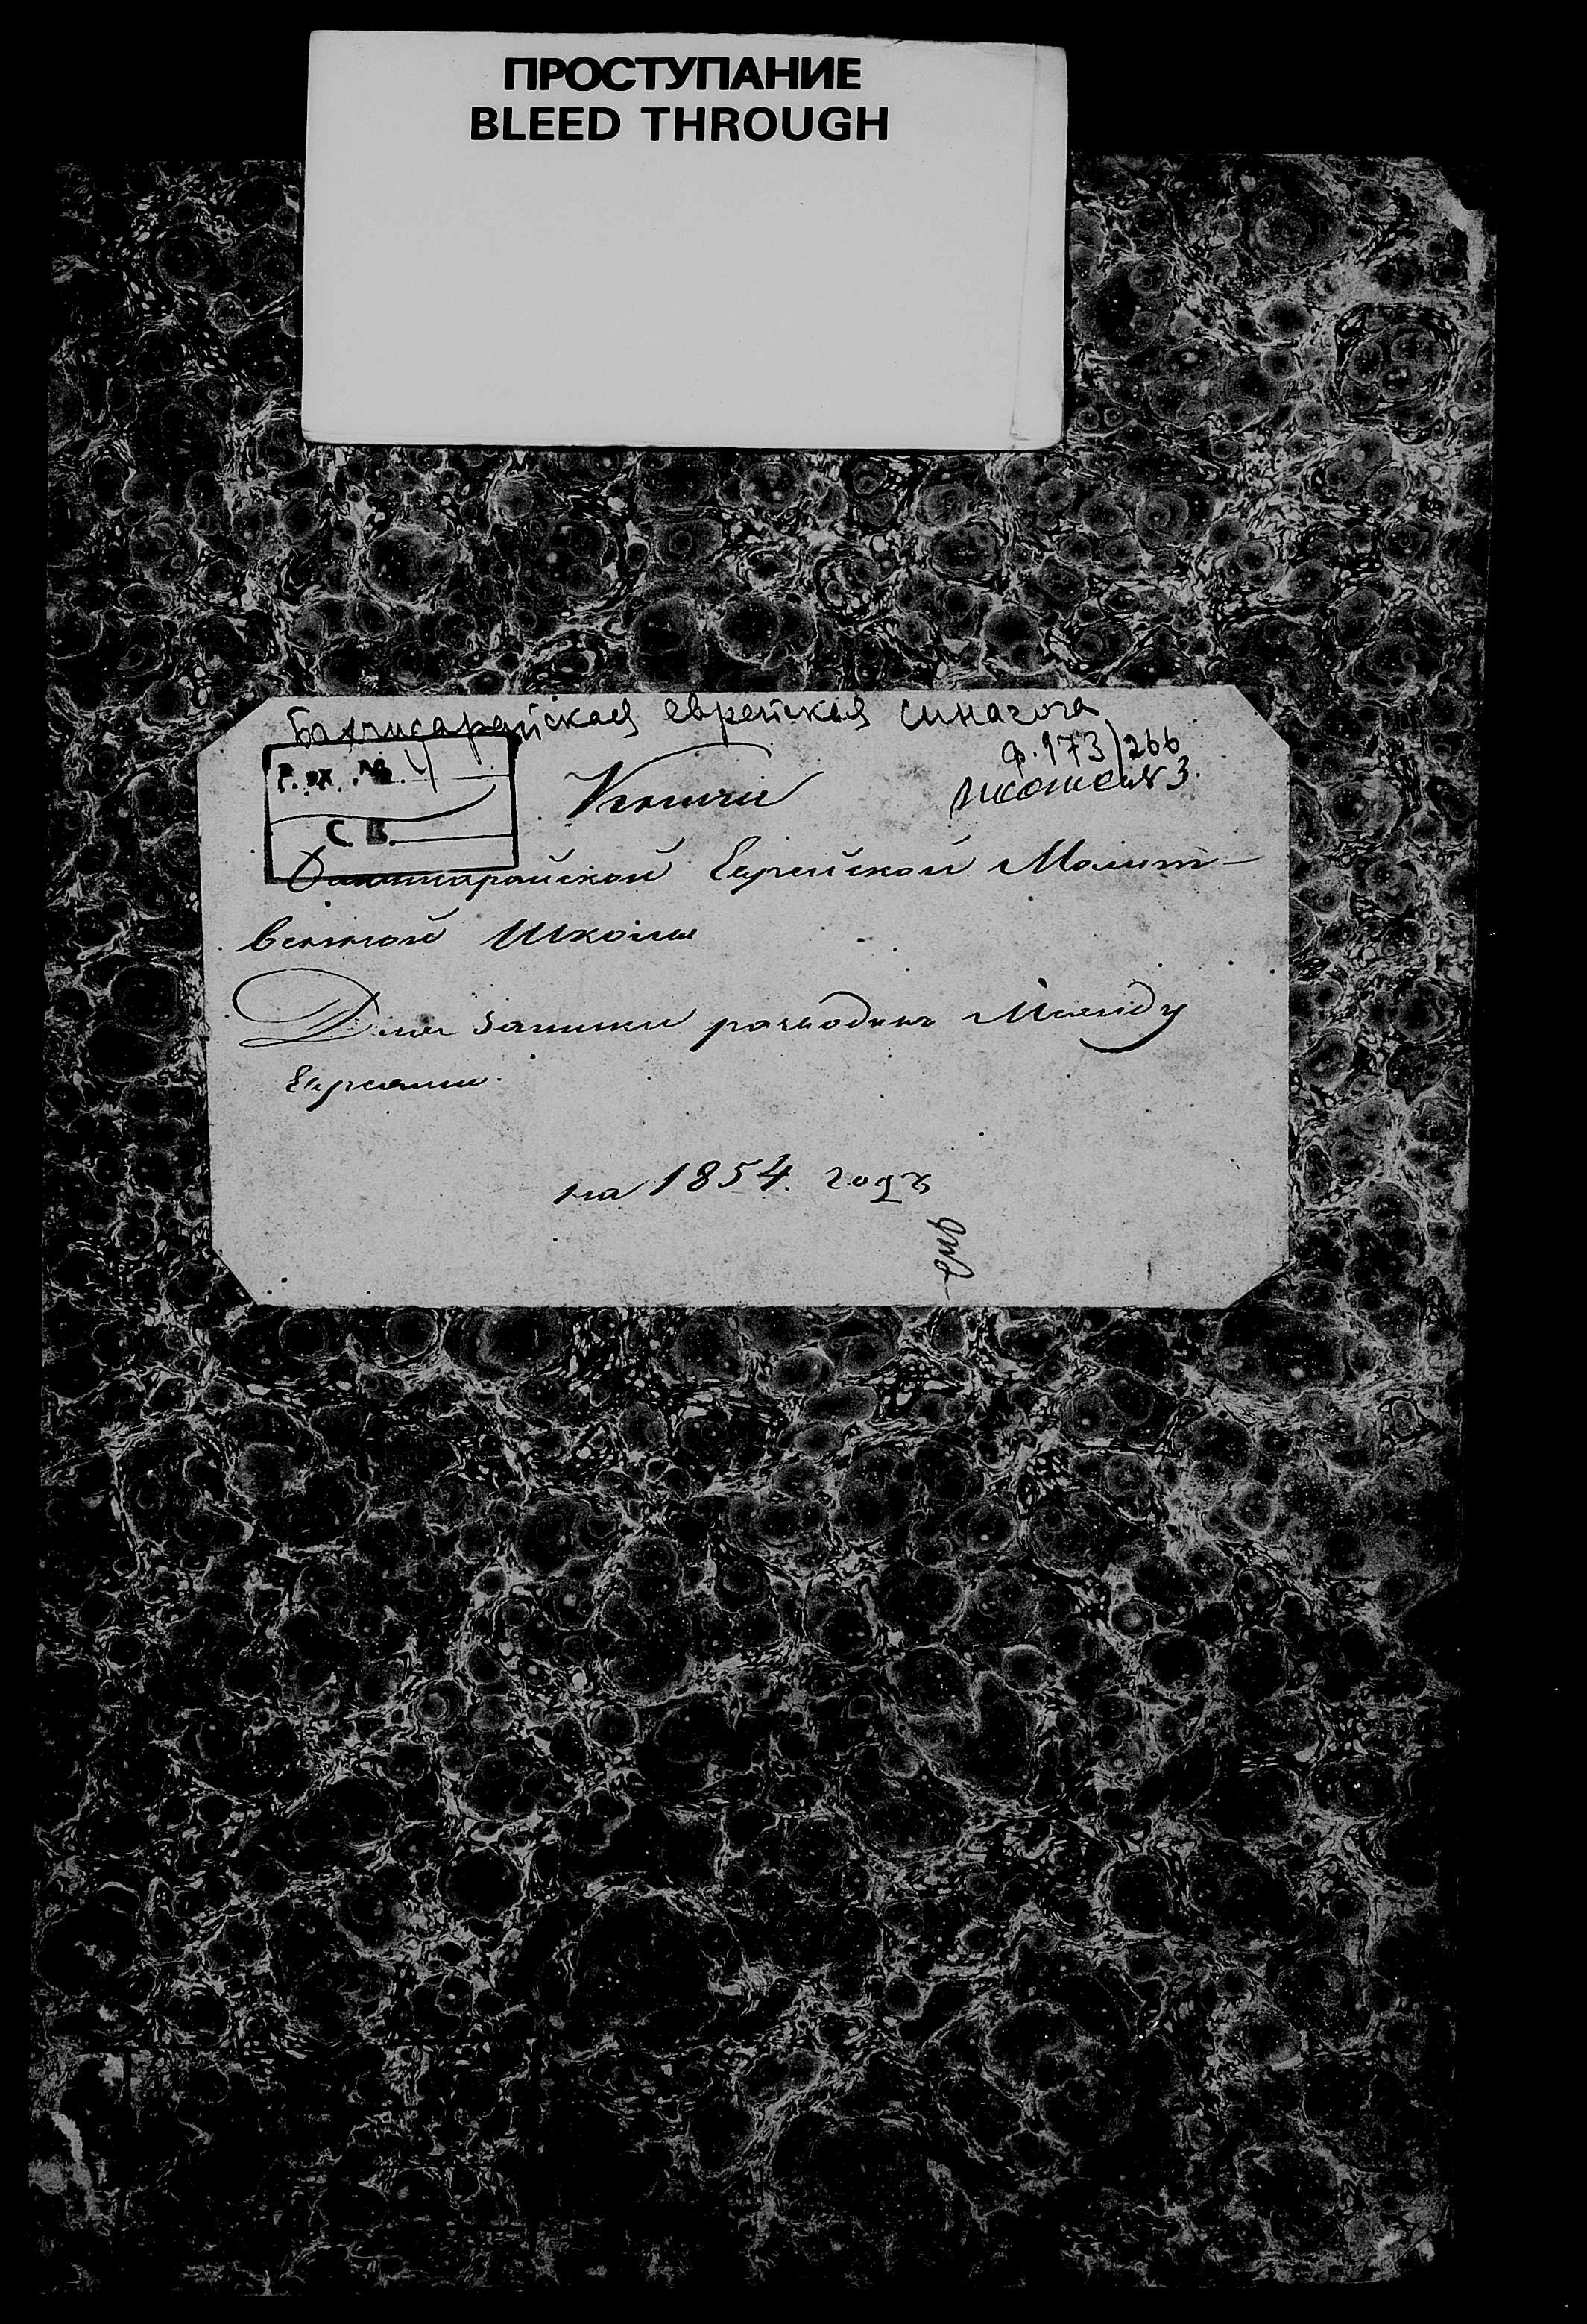 ПРОСТУПАНИЕ
BLEED THROUGH
Бахчисарайская еврейская синагога
ф. 173) 266
Р. вх. № 4
Книги
№ 3.
С. В.
Бахчисарайской Еврейской Молит-
венной Школы
Для записки разводовъ Между
Евреями.
на 1854. годъ